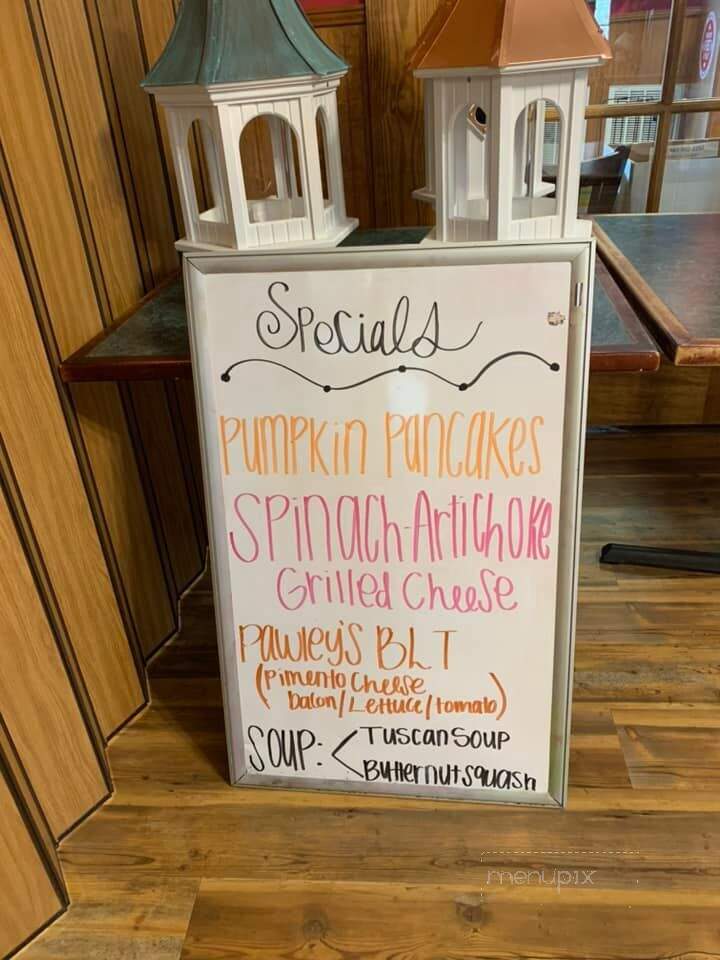 Specials
Pumpkin Pancakes
Spinach-Artichoke
Grilled Cheese
Pawley's BLT
(Pimento Cheese
bacon/Lettuce/tomato)
SOUP: < Tuscan Soup
Butternut squash
menupix